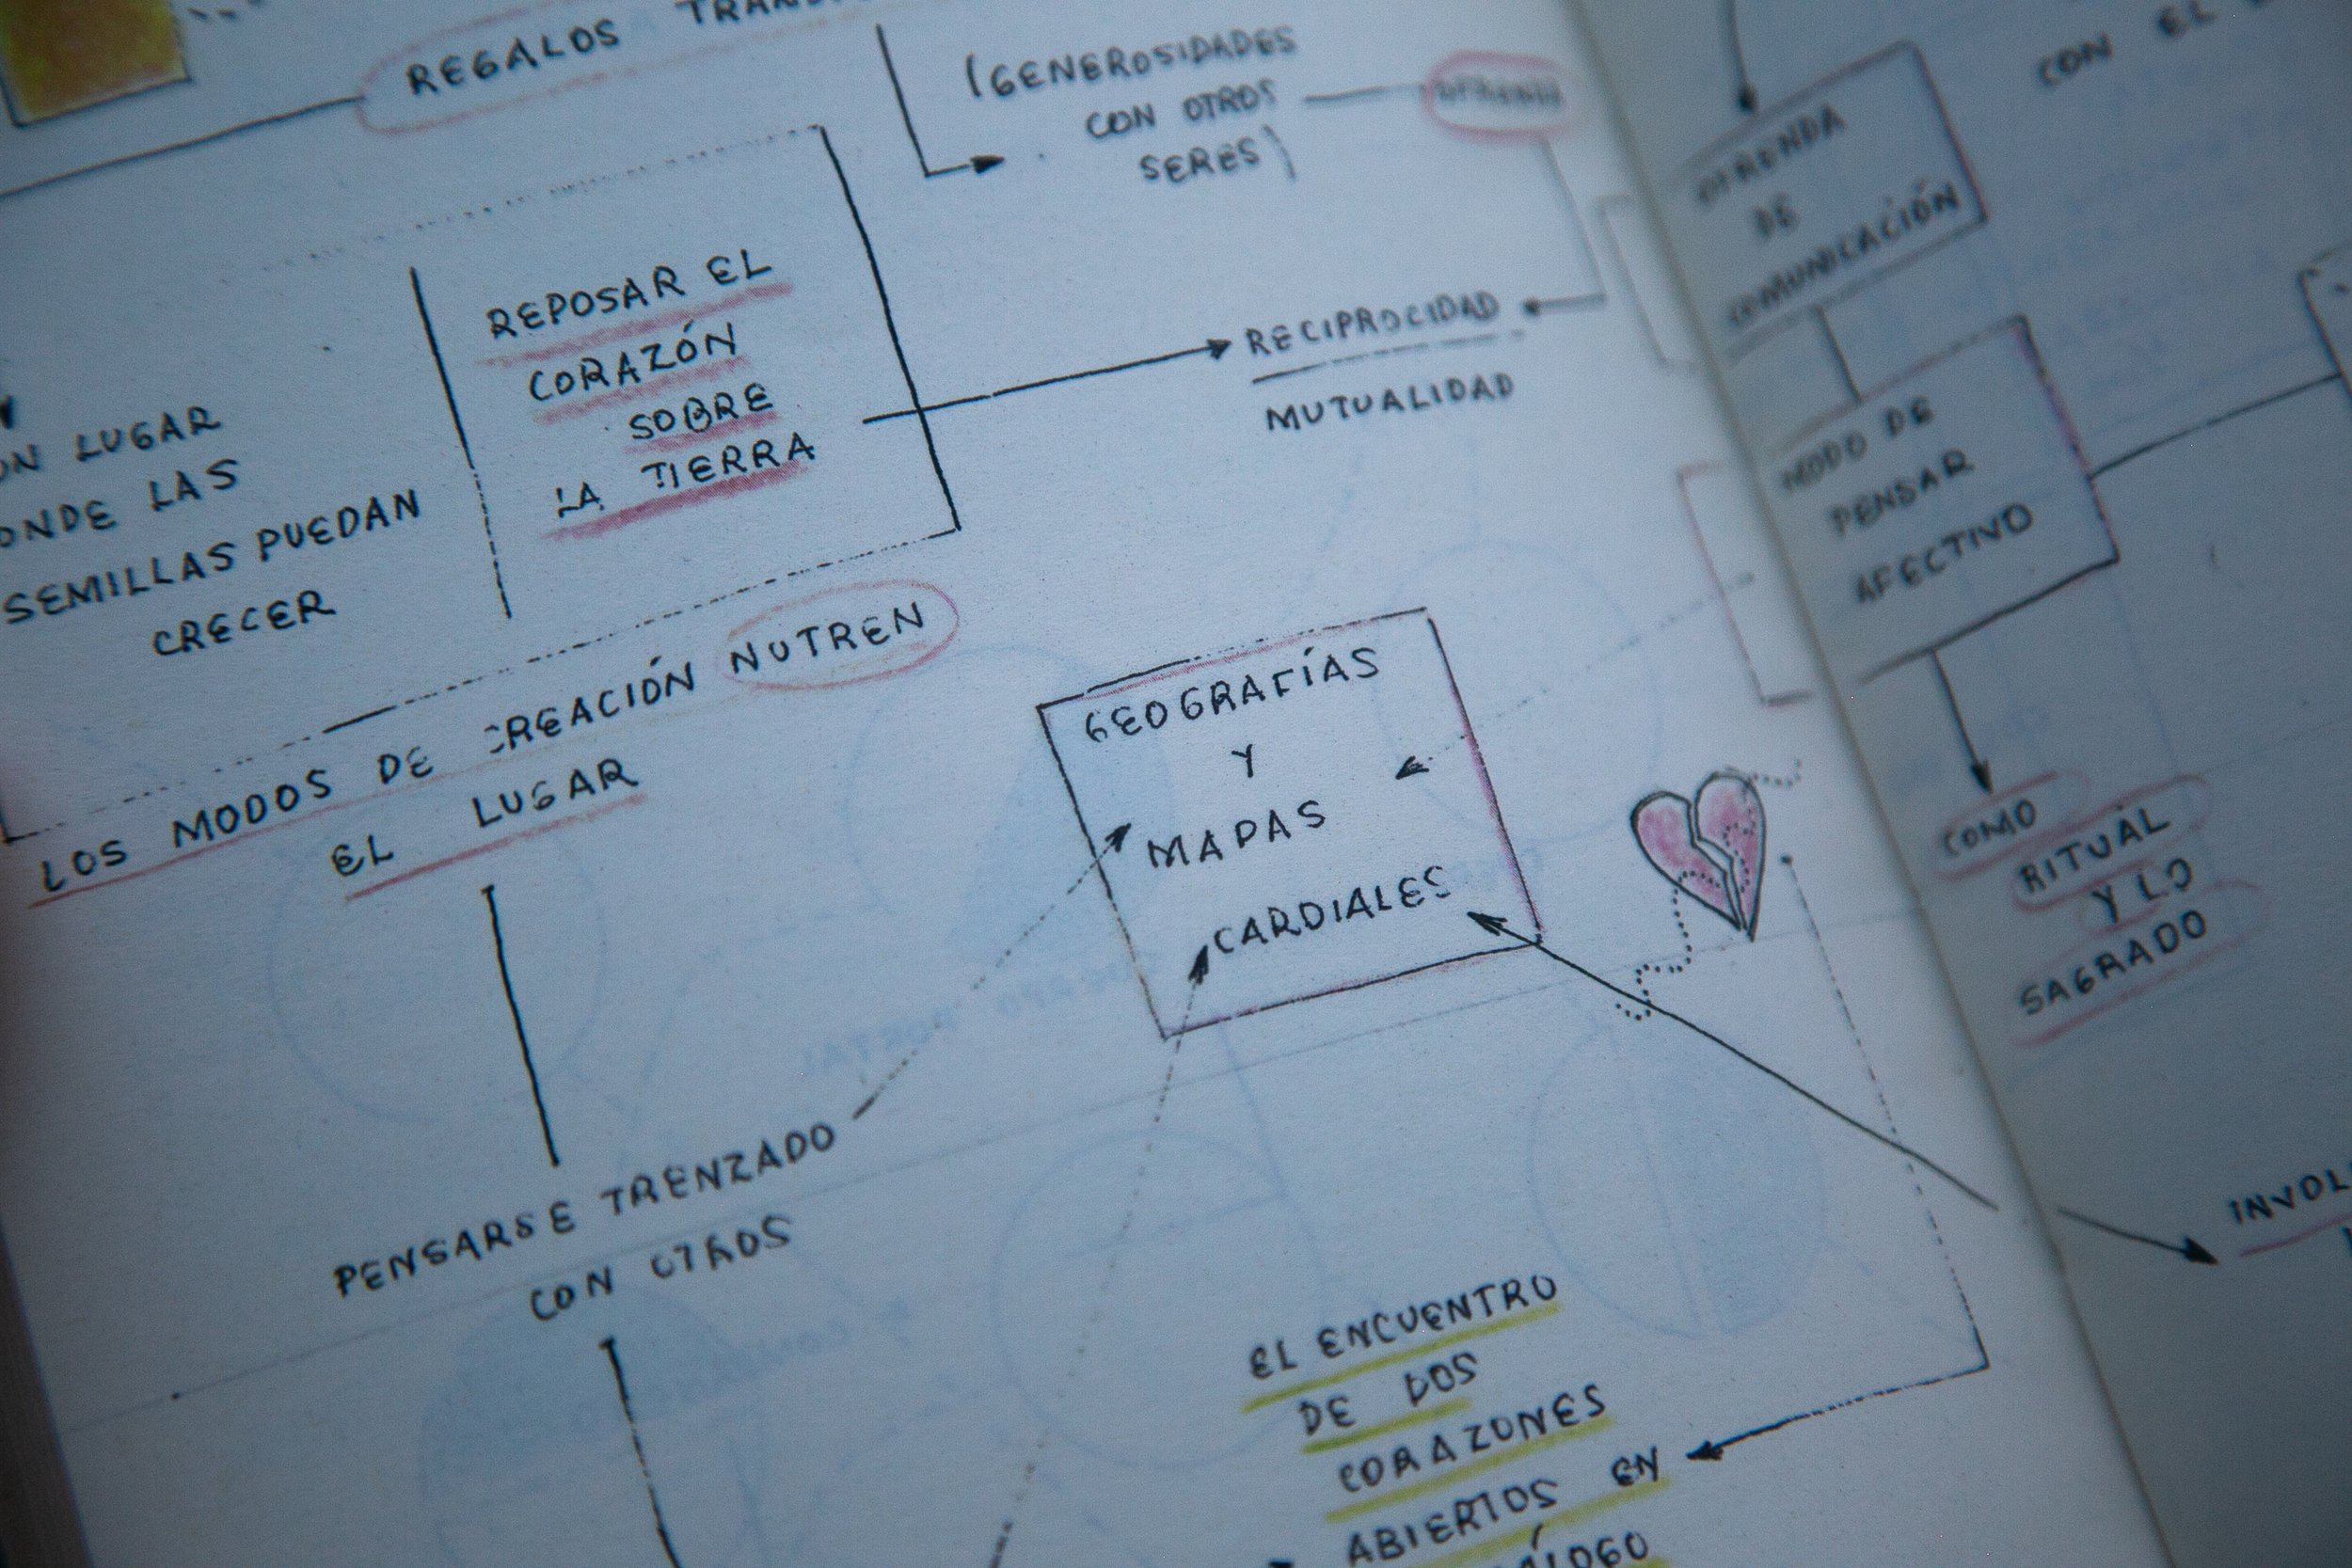 REGALOS
(GENEROSIDADES
CON OTROS
SERES)
REPOSAR EL
CORAZÓN
SOBRE
LA TIERRA
RECIPROCIDAD
MUTUALIDAD
LUGAR
LAS
SEMILLAS PUEDAN
CRECER
LOS MODOS DE CREACIÓN NUTREN
EL LUGAR
GEOGRAFÍAS
Y
MAPAS
CARDIALES
PENSARSE TRENZADO
CON OTROS
EL ENCUENTRO
DE DOS
CORAZONES
ABIERTOS EN
CON EL
OFRENDA
DE
COMUNICACIÓN
MODO DE
PENSAR
AFECTIVO
COMO
RITUAL
Y LO
SAGRADO